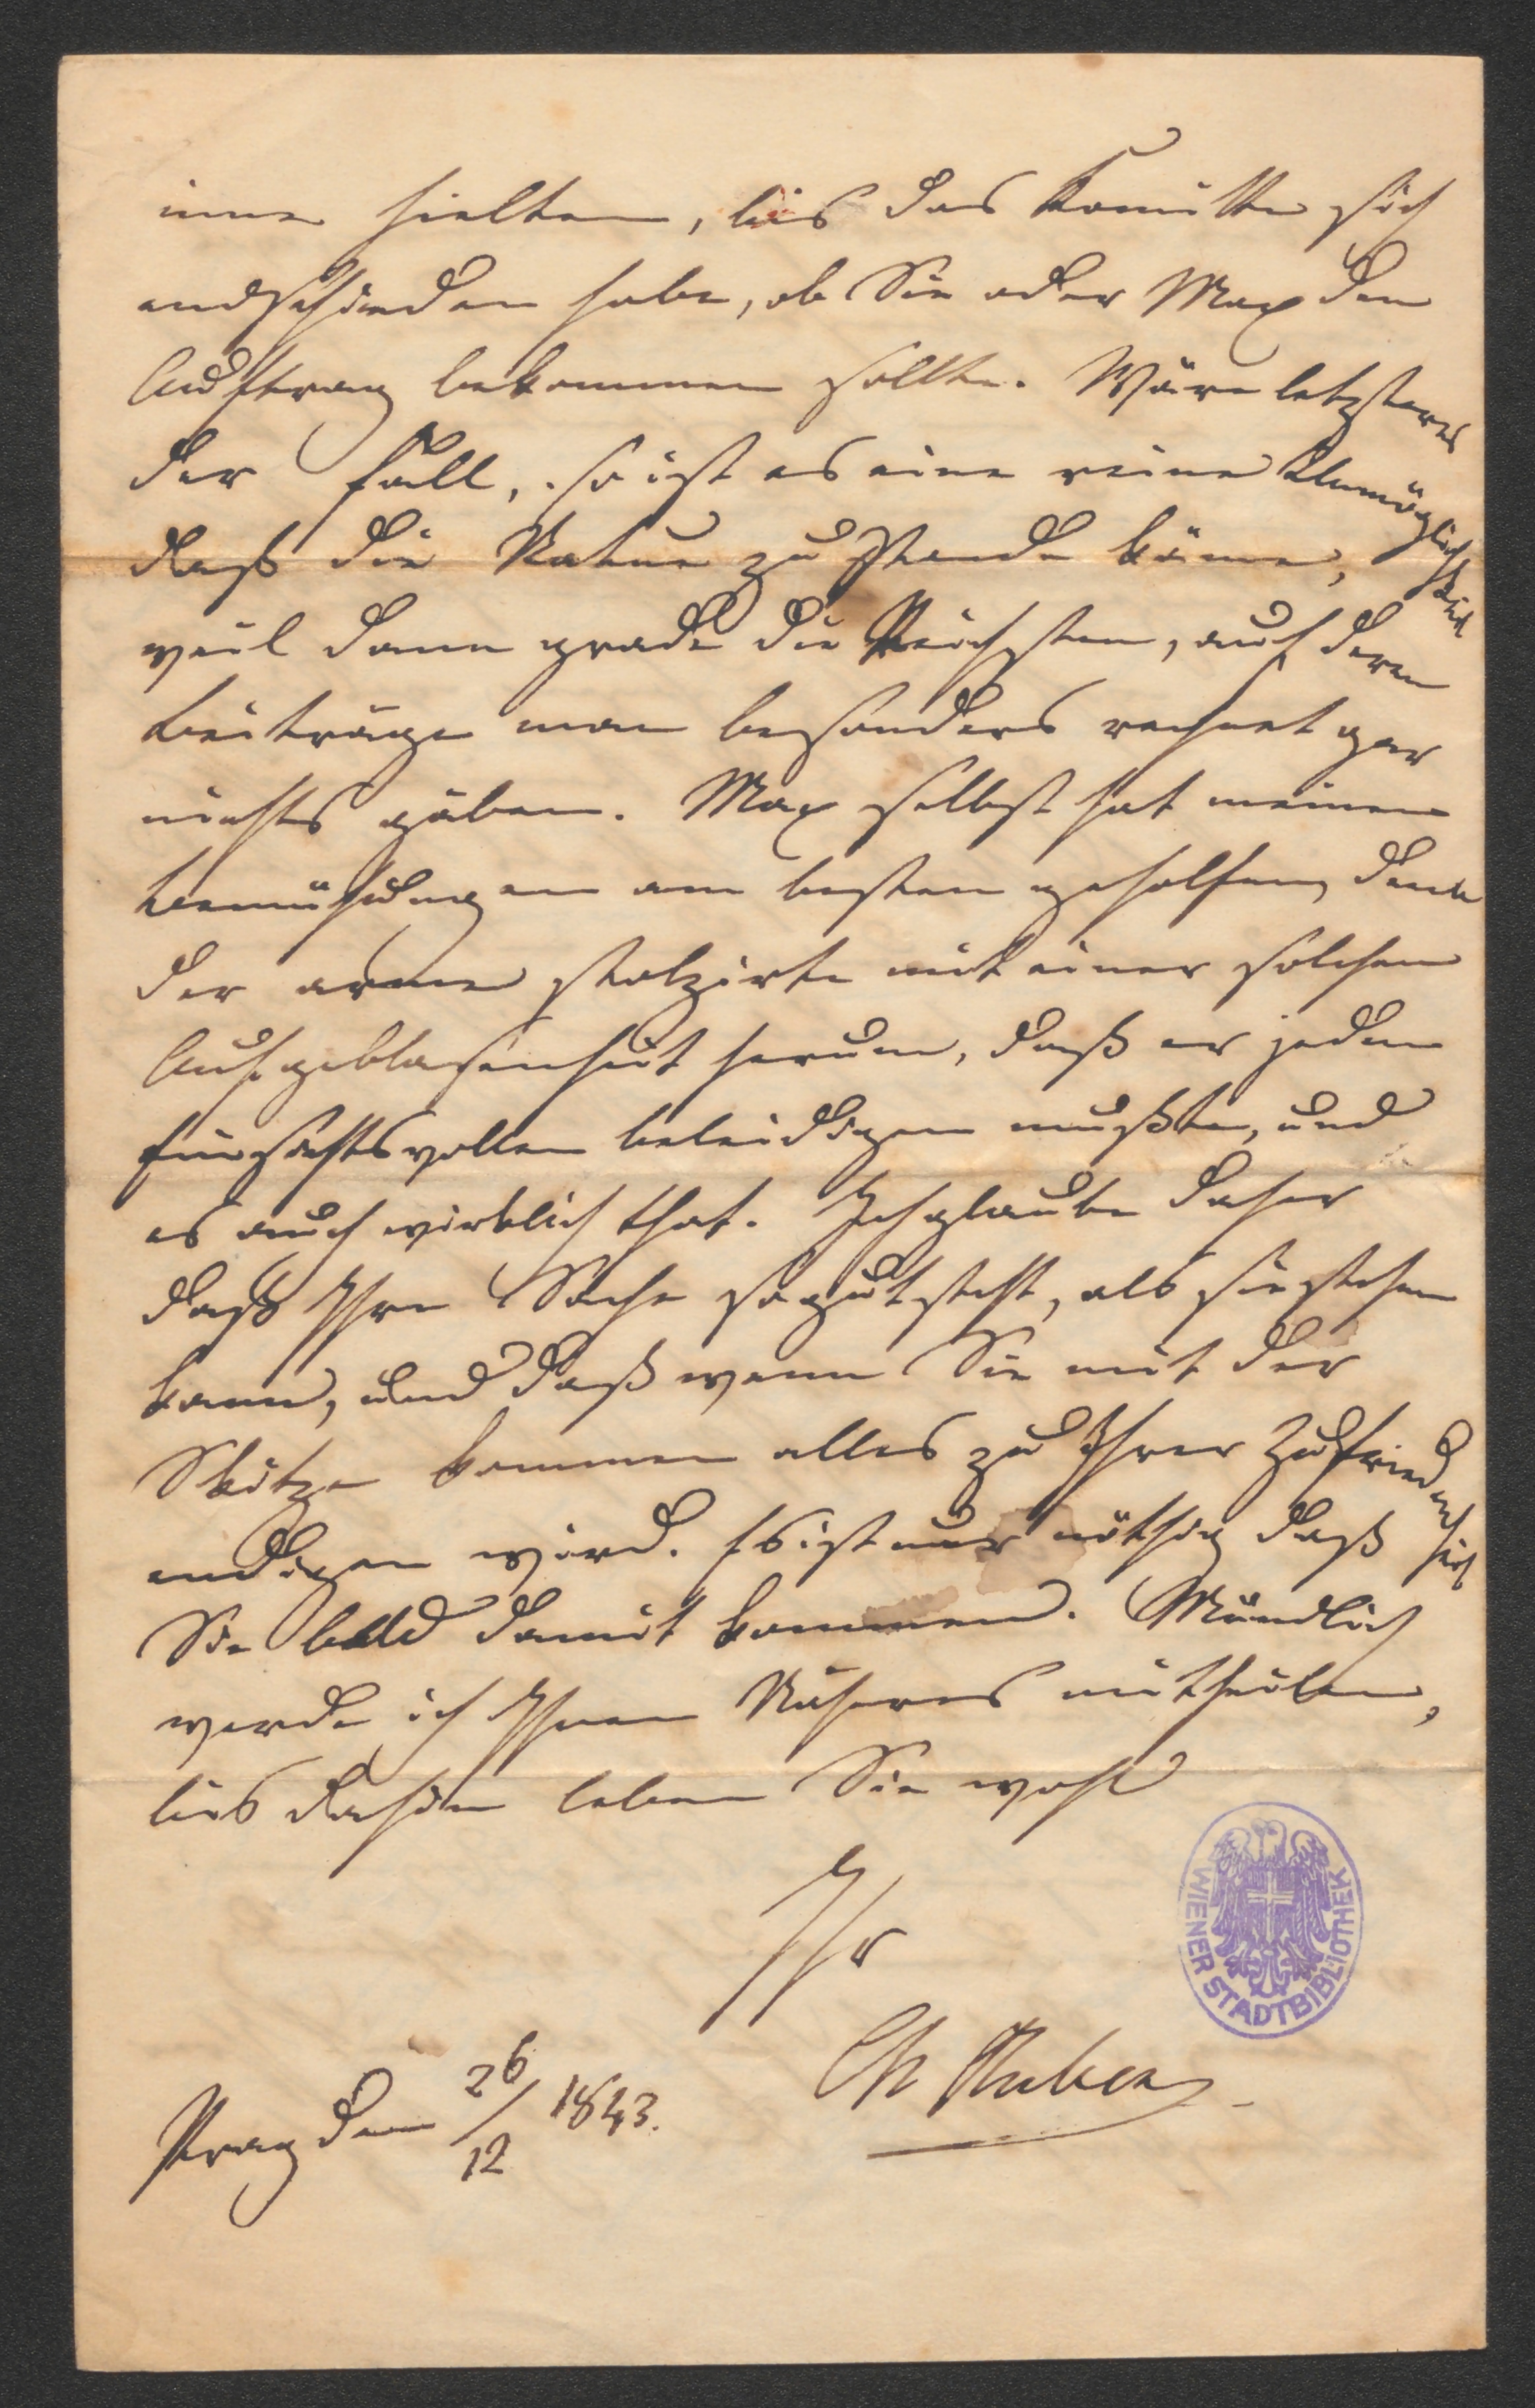 inne hielten, bis das Komitte sich
endschieden habe, ob Sie oder Max den
Auftrag bekommen sollte. Wäre letzteres
der Fall, so ist es eine reine Unmöglichkeit
daß die Statue zu Stande käme,
weil dann grade die Reichsten, auf deren
Beiträge man besonders rechnet gar
nichts gäben. Max selbst hat meinen
Bemühungen am besten geholfen, denn
der arme stolzirte mit einer solchen
Aufgeblasenheit herum, daß er jeden
Einsichtsvollen beleidigen mußte, und
es auch wirklich that. Ich glaube daher
daß Ihre Sache so gut steht, als sie stehen
kann, und daß wenn Sie mit der
Skitze kommen alles zu Ihrer Zufriedenheit
endigen wird. Es ist nur nöthig daß
Sie bald damit kommen. Mündlich
werde ich Ihnen Näheres mittheilen,
bis dahin leben Sie wohl
Ihr
Ch Ruben
Prag den 26/12 1843.
WIENER STADTBIBLIOTHEK